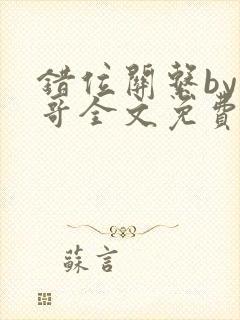 錯位關繫by
哥全文免費
蘇言